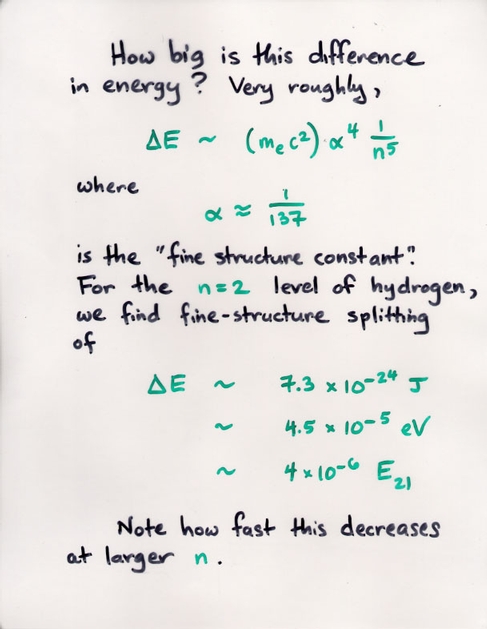 How big is this difference
in energy? Very roughly,
ΔE ~ (mₑc²)·α⁴ 1/n⁵
where
α ≈ 1/137
is the "fine structure constant".
For the n=2 level of hydrogen,
we find fine-structure splitting
of
ΔE ~ 7.3 × 10⁻²⁴ J
~ 4.5 × 10⁻⁵ eV
~ 4 × 10⁻⁶ E₂₁
Note how fast this decreases
at larger n.